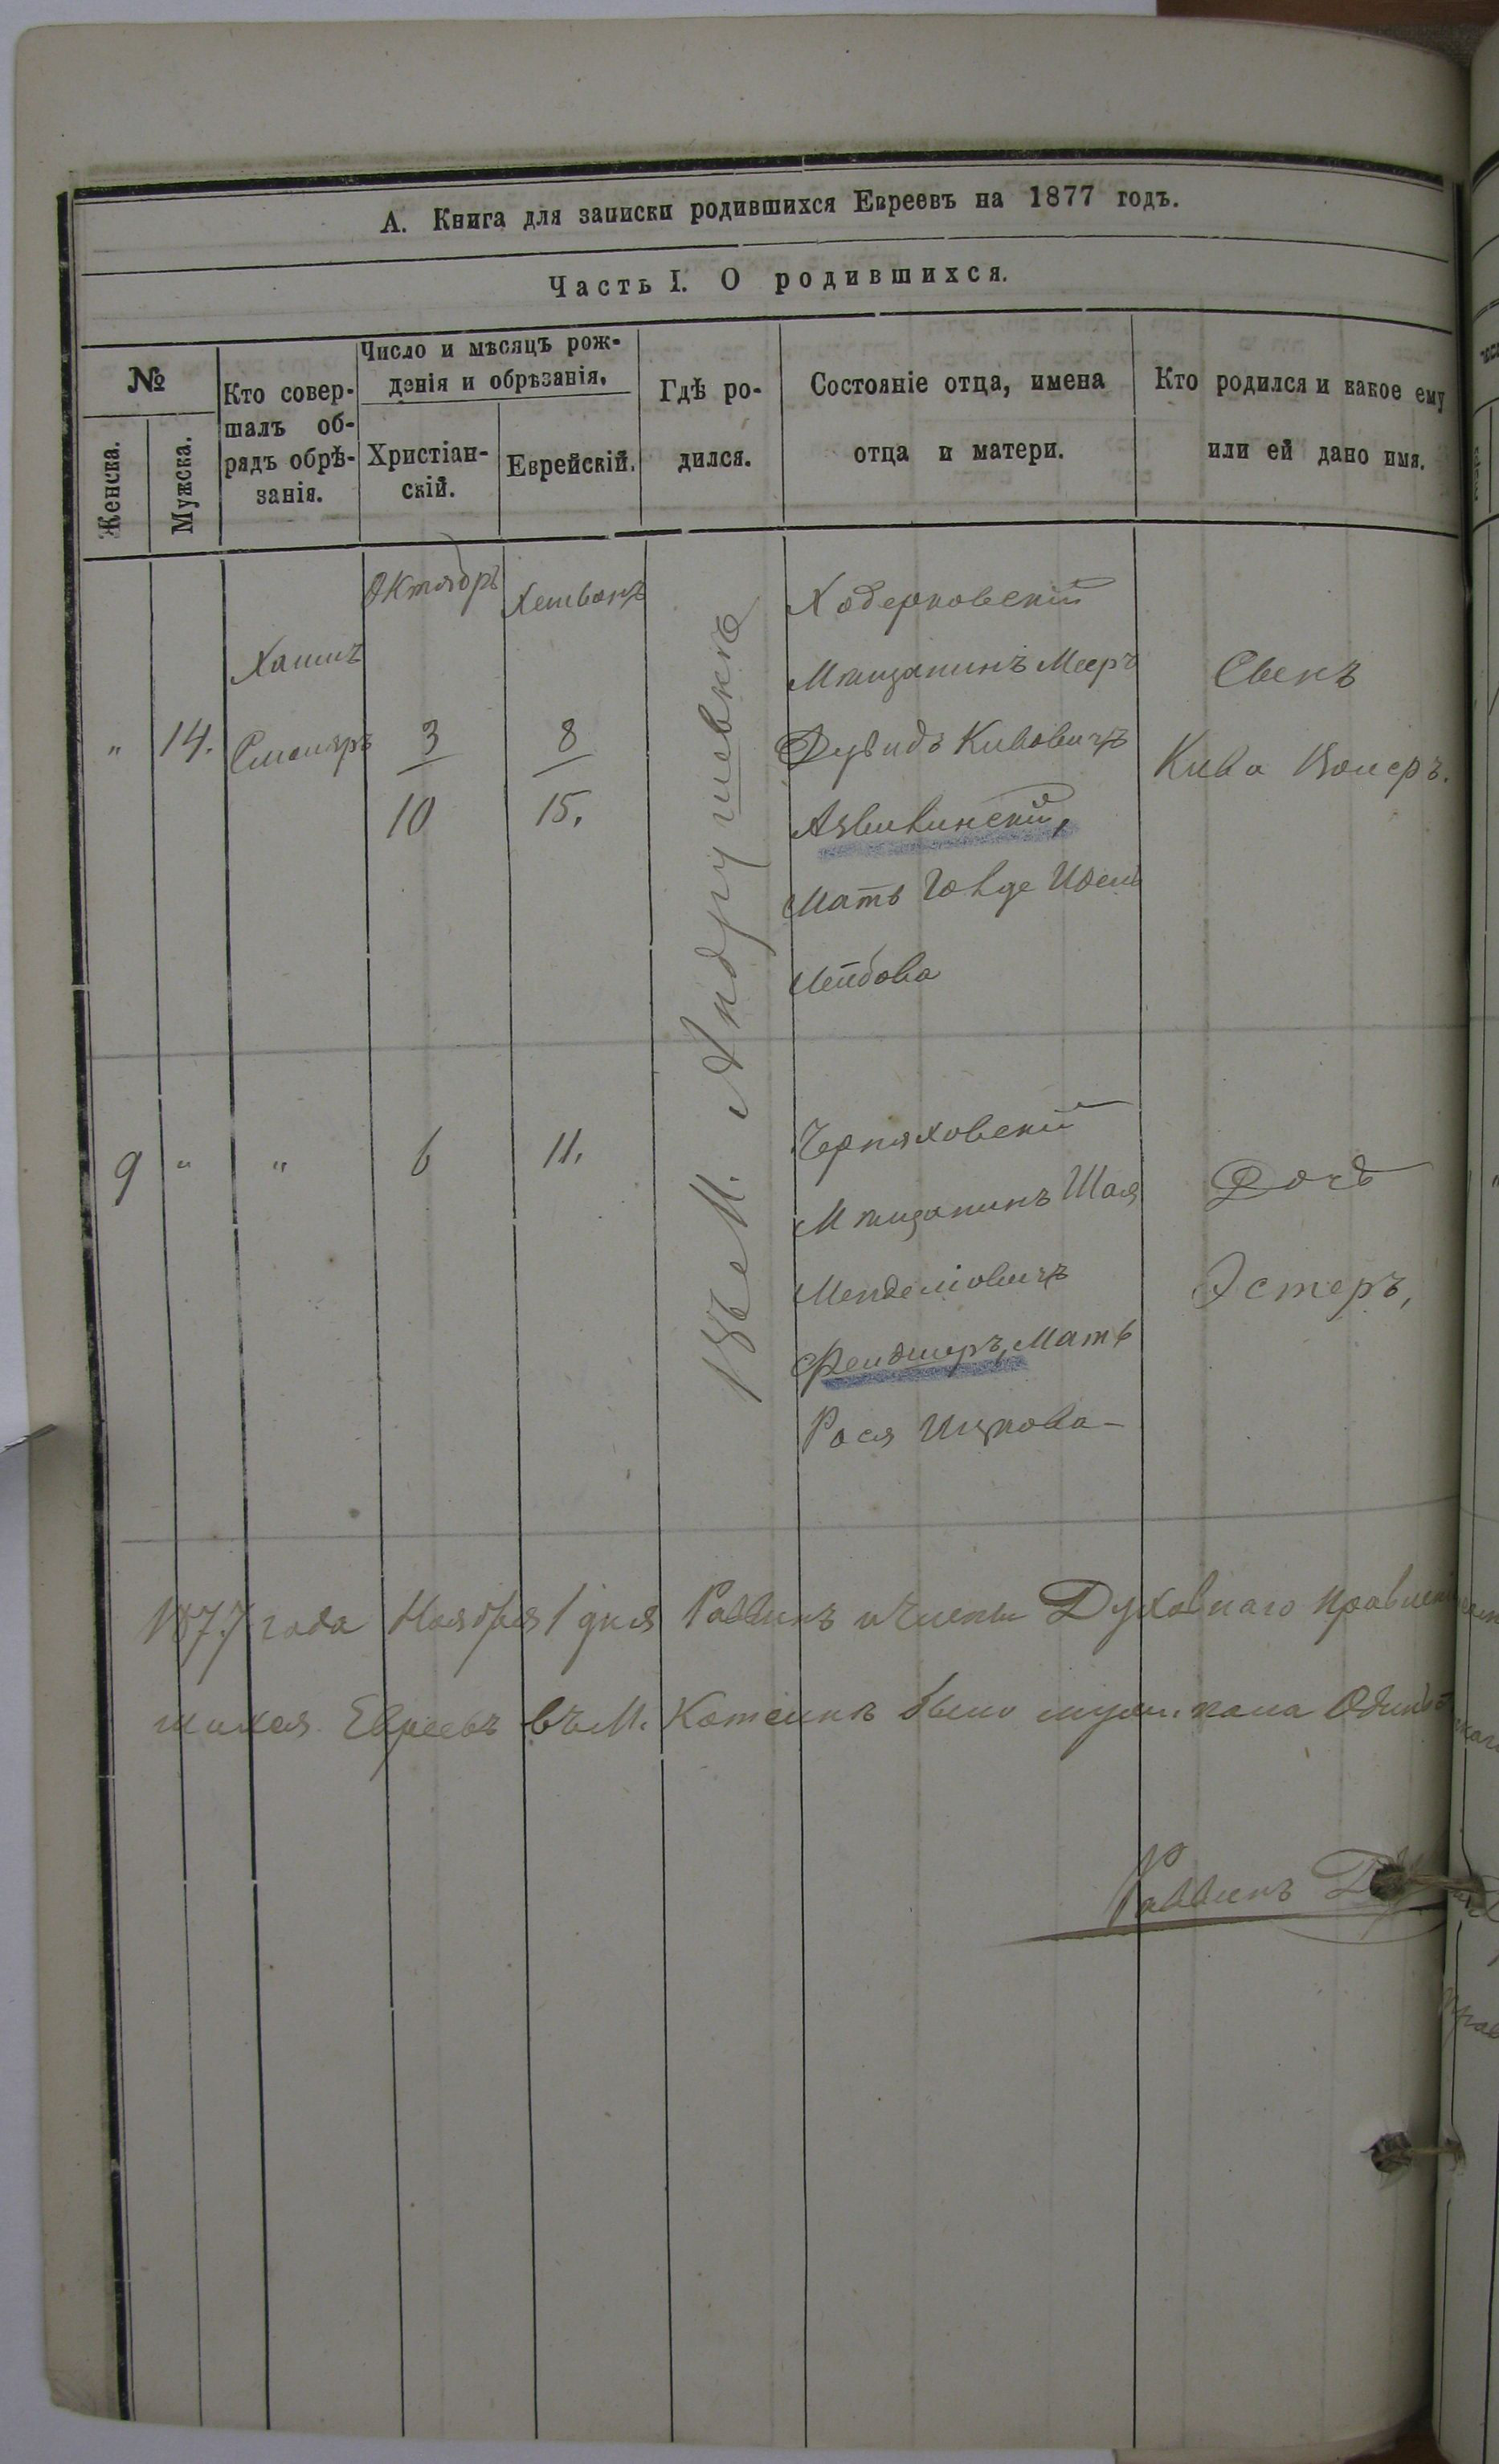 А. Книга для записки родившихся Евреевъ на 1877 годъ.
Часть I. О родившихся.
№
Женска.
Мужска.
Кто совер-
шалъ об-
рядъ обрѣ-
занія.
Число и мѣсяцъ рож-
денія и обрѣзанія.
Христіан-
скій.
Еврейскій.
Гдѣ ро-
дился.
Состояніе отца, имена
отца и матери.
Кто родился и какое ему
или ей дано имя.
"
14.
Хаимъ
Смоляръ
Октябрь
3
10
Хешванъ
8
15.
Въ М. Андрушевкѣ
Ходорковскій
Мѣщанинъ Мееръ
Дувидъ Кивовичъ
Мать Говде
Лейбова
Сынъ
Кива
9
"
"
6
11.
Черняховскій
Мѣщанинъ Шая
Менделіовичъ
Мать
Рося
Дочь
Эстеръ,
1877 года Ноября 1 дня Раввинъ и Члены Духовнаго Правлен
шихся Евреевъ въ М. было муж. пола
Раввинъ